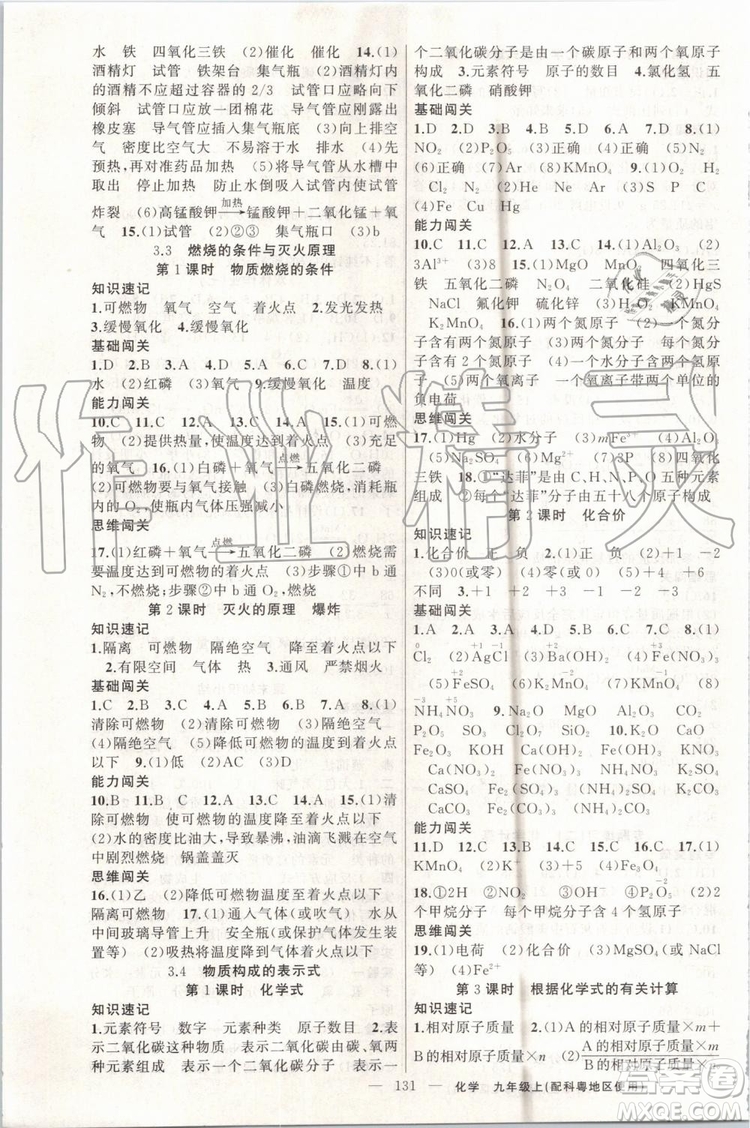 水　铁　四氧化三铁　(2)催化　催化　14.(1)
酒精灯　试管　铁架台　集气瓶　(2)酒精灯内
的酒精不应超过容器的 2/3　试管口应略向下
倾斜　试管口应放一团棉花　导气管应刚露出
橡皮塞　导气管应插入集气瓶底　(3)向上排空
气　密度比空气大　不易溶于水　排水　(4)先
预热,再对准药品加热　(5)将导气管从水槽中
取出　停止加热　防止水倒吸入试管内使试管
炸裂　(6)高锰酸钾 加热→ 锰酸钾＋二氧化锰＋氧
气　15.(1)试管　(2)②③　集气瓶口　(3)b
3.3　燃烧的条件与灭火原理
第 1 课时　物质燃烧的条件
知识速记
1.可燃物　氧气　空气　着火点　2.发光发热
3.缓慢氧化　4.缓慢氧化
基础闯关
1.D　2.B　3.B　4.D　5.A　6.D　7.D　8.(1)
水　(2)红磷　(3)氧气　9.缓慢氧化　温度
能力闯关
10.C　11.C　12.A　13.C　14.A　15.(1)可燃
物　(2)提供热量,使温度达到着火点　(3)充足
的氧气　16.(1)白磷＋氧气 点燃→ 五氧化二磷
(2)可燃物要与氧气接触　(3)白磷燃烧,消耗瓶
内氧气,使瓶内气体压强减小
思维闯关
17.(1)红磷＋氧气 点燃→ 五氧化二磷　(2)燃烧需
要温度达到着火点　(3)步骤①中 b 通
N₂,不燃烧;步骤②中 b 通入 O₂,燃烧
第 2 课时　灭火的原理　爆炸
知识速记
1.隔离　可燃物　隔绝空气　着火点以下
2.有限空间　气体　热　3.通风　严禁烟火
基础闯关
1.C　2.B　3.A　4.D　5.B　6.A　7.D　8.(1)
清除可燃物　(2)清除可燃物　(3)隔绝空气
(4)隔绝空气　(5)降低可燃物的温度到着火点
以下　9.(1)低　(2)AC　(3)D
能力闯关
10.B　11.B　12.C　13.B　14.A　15.(1)
清除可燃物　使可燃物的温度降到着火点以下
(2)水的密度比油大,导致暴沸,油滴飞溅在空气
中剧烈燃烧　锅盖盖灭
思维闯关
16.(1)乙　(2)降低可燃物温度至着火点以下
隔离可燃物　17.(1)通入气体(或吹气)　水从
中间玻璃导管上升　安全瓶(或保护气体发生装
置等)　(2)吸热将温度降到可燃物着火点以下
3.4　物质构成的表示式
第 1 课时　化学式
知识速记
1.元素符号　数字　元素种类　原子数目　2.表
示二氧化碳这种物质　表示二氧化碳由碳、氧两
种元素组成　表示一个二氧化碳分子　表示一
个二氧化碳分子是由一个碳原子和两个氧原子
构成　3.元素符号　原子的数目　4.氯化氢　五
氧化二磷　硝酸钾
基础闯关
1.D　2.D　3.B　4.B　5.D　6.D　7.D　8.(1)
NO₂　(2)P₂O₅　(3)正确　(4)正确　(5)N₂
(6)正确　(7)Ar　(8)KMnO₄　9.(1)O₂　H₂
Cl₂　N₂　(2)He　Ne　Ar　(3)S　P　C
(4)Fe　Cu　Hg
能力闯关
10.C　11.C　12.C　13.C　14.(1)Al₂O₃　(2)
(3)3Al³⁺　15.(1)MgO　MnO₂　四氧化三
铁　五氧化二磷　N₂O₅　二氧化硅　(2)HgS
NaCl　氟化钾　硫化锌　(3)H₂O₂　KMnO₄
K₂MnO₄　16.(1)两个氮原子　(2)一个氮分
子含有两个氮原子　(3)两个氮分子
(4)两个水分子　一个水分子含有两个氢原
子　(5)两个氧离子　一个氧离子带两个单位的
负电荷
思维闯关
17.(1)Hg　(2)水分子　(3)mFe³⁺　2NH₄⁺
(4)Mg²⁺　(5)MgO　(6)H₂　(7)3P　(8)四氧化
三铁　18.①“达菲”是由 C、H、N、P、O 五种元素
组成　②每个“达菲”分子由五十八个原子构成
第 2 课时　化合价
知识速记
1.化合价　2.(1)正　负　(2)＋1　－1　－2
(3)0(或零)　(4)0(或零)　(5)＋4　＋6
不同　3.＋2　－1
基础闯关
1.A　2.A　3.C　4.D　5.B　6.C　7.C　8.(1)
Cl₂　(2)AgCl　(3)Ba(OH)₂　(4)Fe(NO₃)₃
(5)FeSO₄　(6)K₂MnO₄　(7)KMnO₄　(8)
NH₄NO₃　9.Na₂O　MgO　Al₂O₃　P₂O₅
SO₂　Cl₂O　H₂O₂　MnO₂　10.CuO　CaO
Fe₂O₃　KOH　Ca(OH)₂　Fe(OH)₃　KNO₃
CaSO₄　Al₂(SO₄)₃　Fe₂(SO₄)₃　K₂SO₄
CaCO₃　Fe₂(CO₃)₃　K₂CO₃
能力闯关
11.C　12.D　13.C　14.D　15.B　16.D　17.(1)
KMnO₄　(2)Fe₂O₃　(3)＋1　(4)3Fe²⁺
18.①2H　②NO₂　③Al³⁺　④P₂O₅　(2)2
个甲烷分子　每个甲烷分子含有 4 个氢原子
思维闯关
19.(1)电荷　(2)化合价　(3)MgSO₄(或 NaCl
等)　(4)Fe²⁺
第 3 课时　根据化学式的有关计算
知识速记
1.相对原子质量　2.(1)A 的相对原子质量×m＋
B 的相对原子质量×n　(2)A的相对原子质量×m/B的相对原子质量×n
— 131 —　化学　九年级上(配科粤地区使用)
作业精灵
答案圈